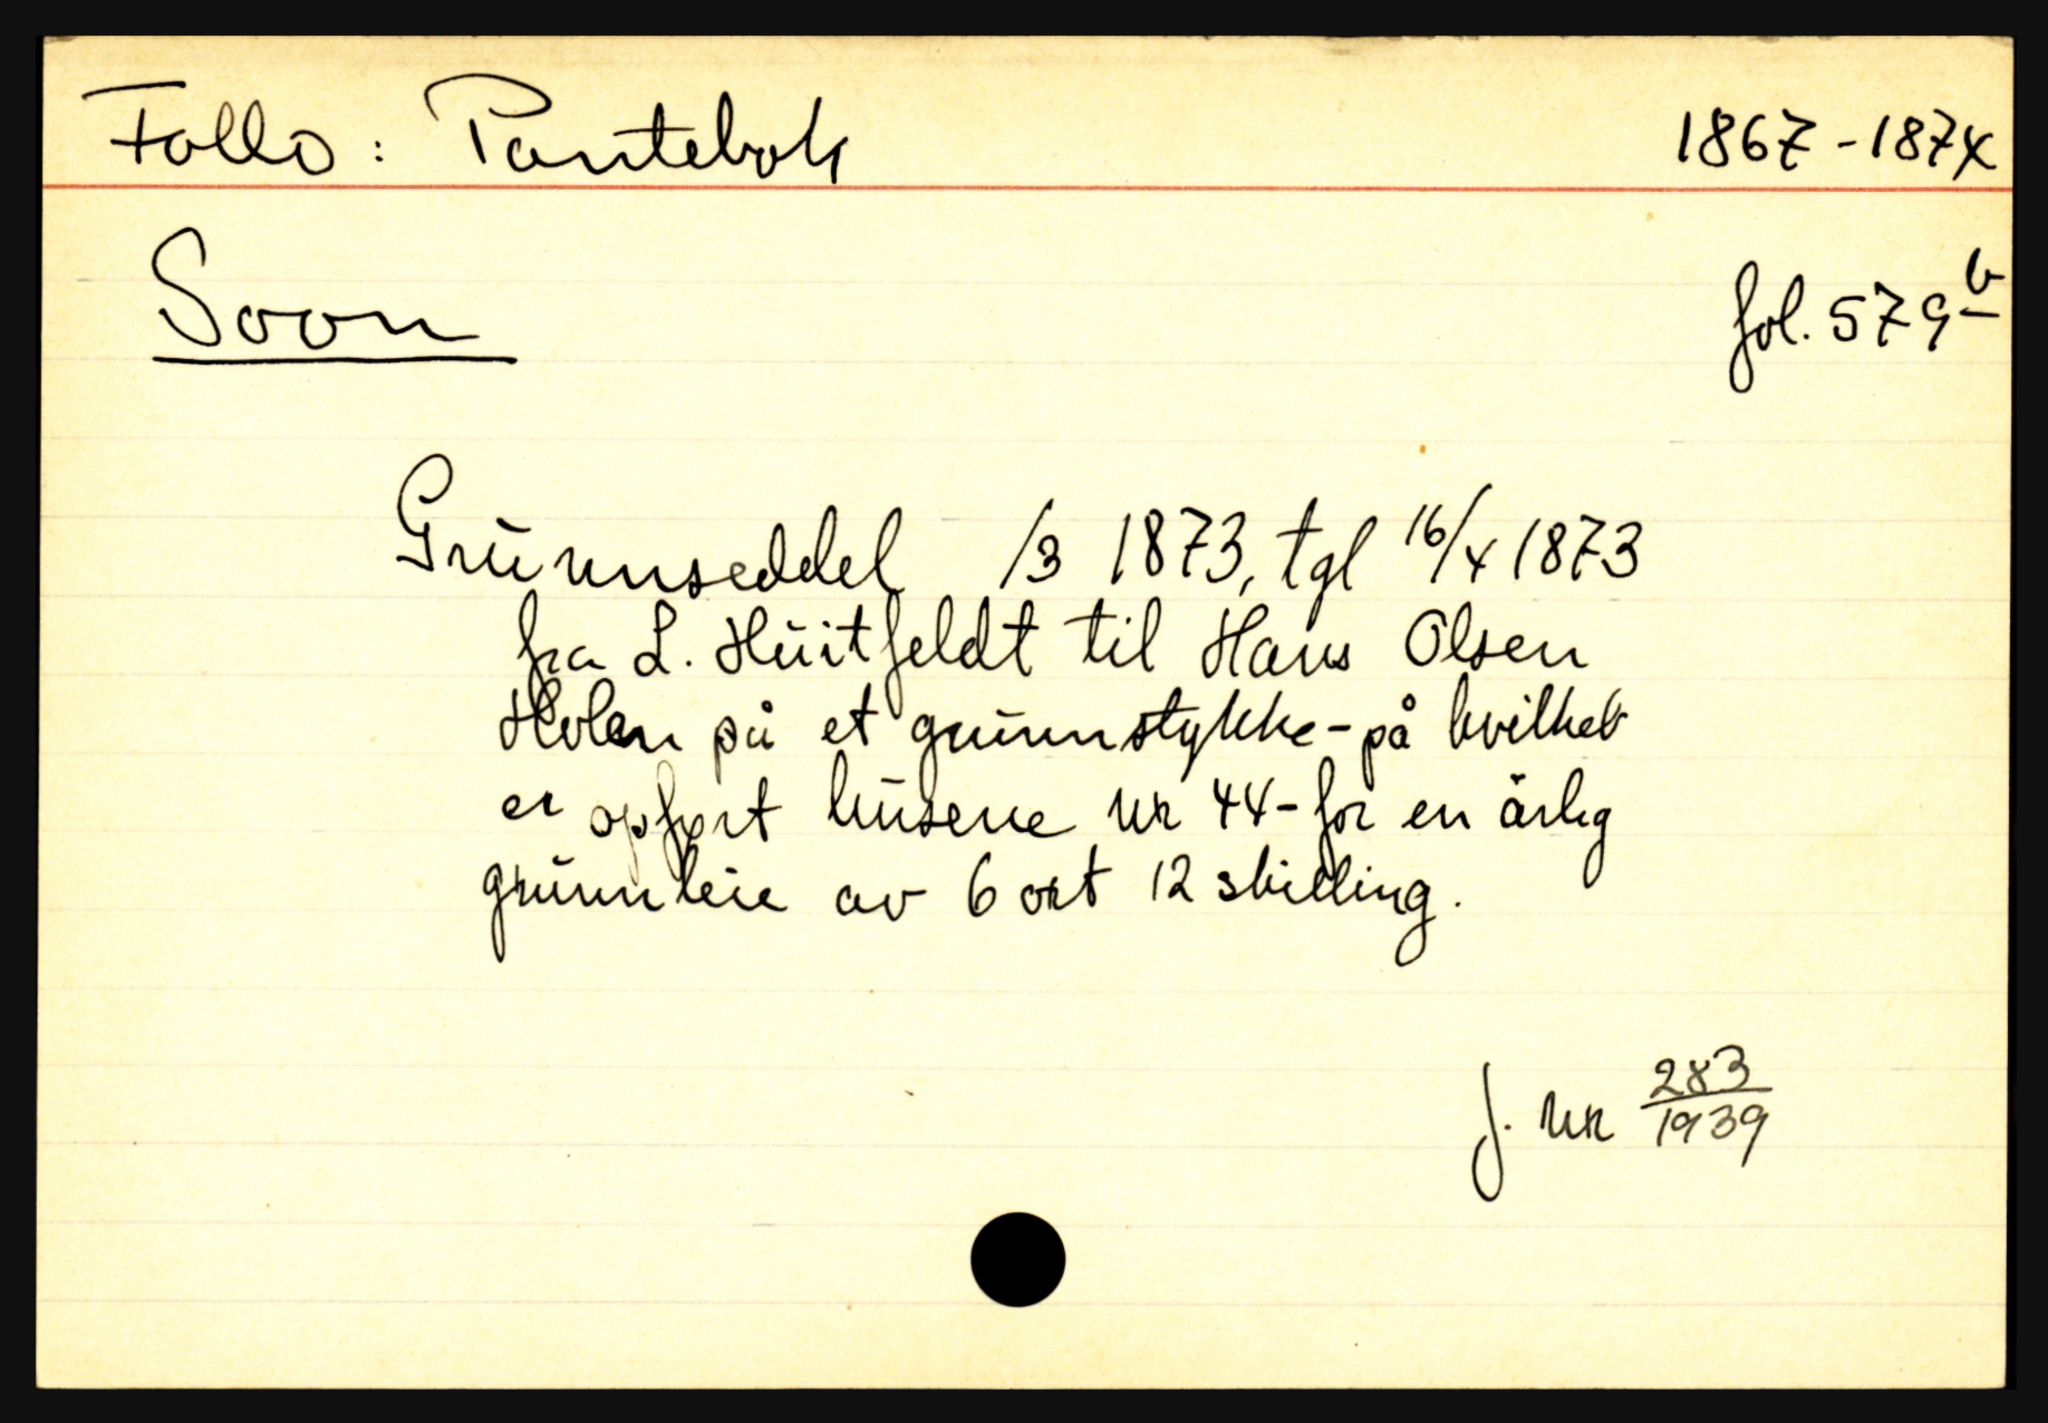 Follo: Pantebok 1867-1874
Soon fol. 579 b
Grunnseddel /3 1873, tgl 16/4 1873
fra L. Huitfeldt til Hans Olsen
Holen på et grunnstykke - på hvilket
er opført husene nr 44 - for en årlig
grunnleie av 6 ort 12 skilling.
j. nr 283/1939